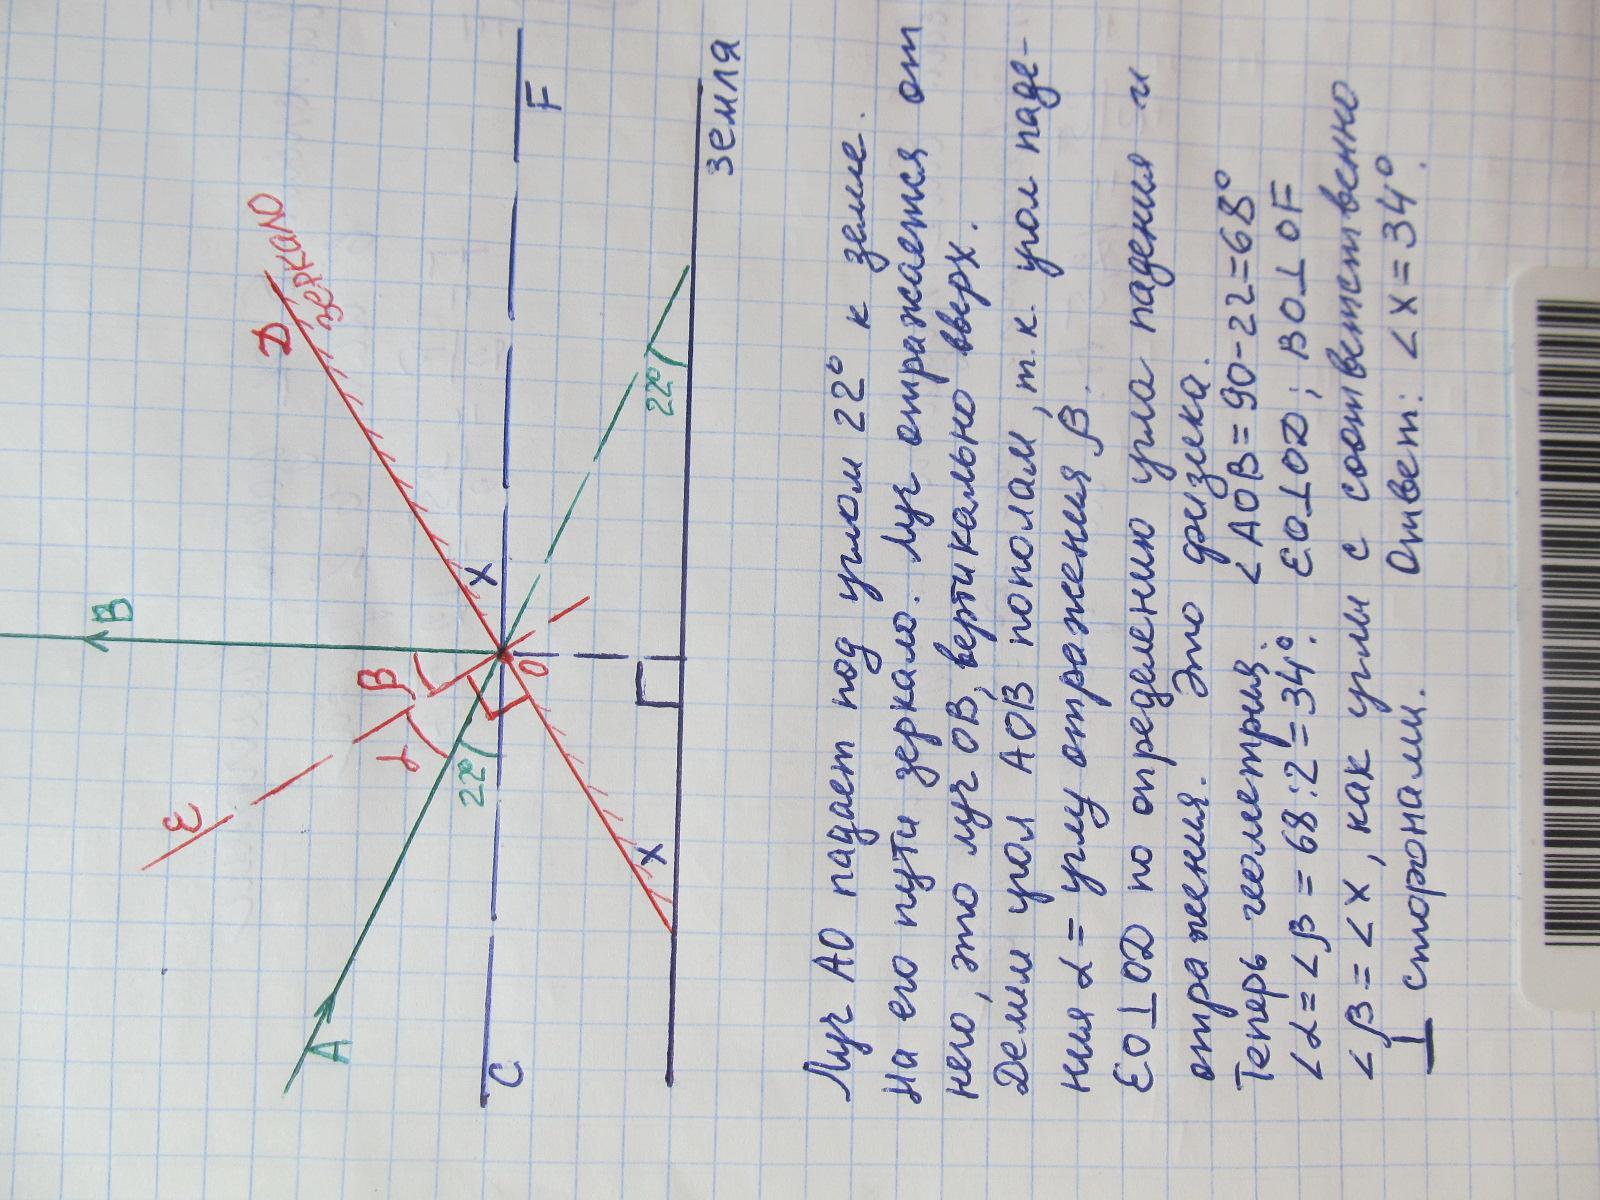 A
B
E
α
β
22°
C
O
X
X
Д
зеркало
F
22°
земля
Луч АО падает под углом 22° к земле.
На его пути зеркало. Луч отражается от
него, это луч ОВ, вертикально вверх.
Делим угол АОВ пополам, т.к. угол паде-
ния α = углу отражения β.
ЕО⊥ОД по определению угла падения и
отражения. Это физика.
Теперь геометрия. ∠АОВ=90-22=68°
∠α=∠β=68:2=34°. ЕО⊥ОД; ВО⊥OF
∠β=∠X, как углы с соответственно
⊥ сторонами. Ответ: ∠X=34°.